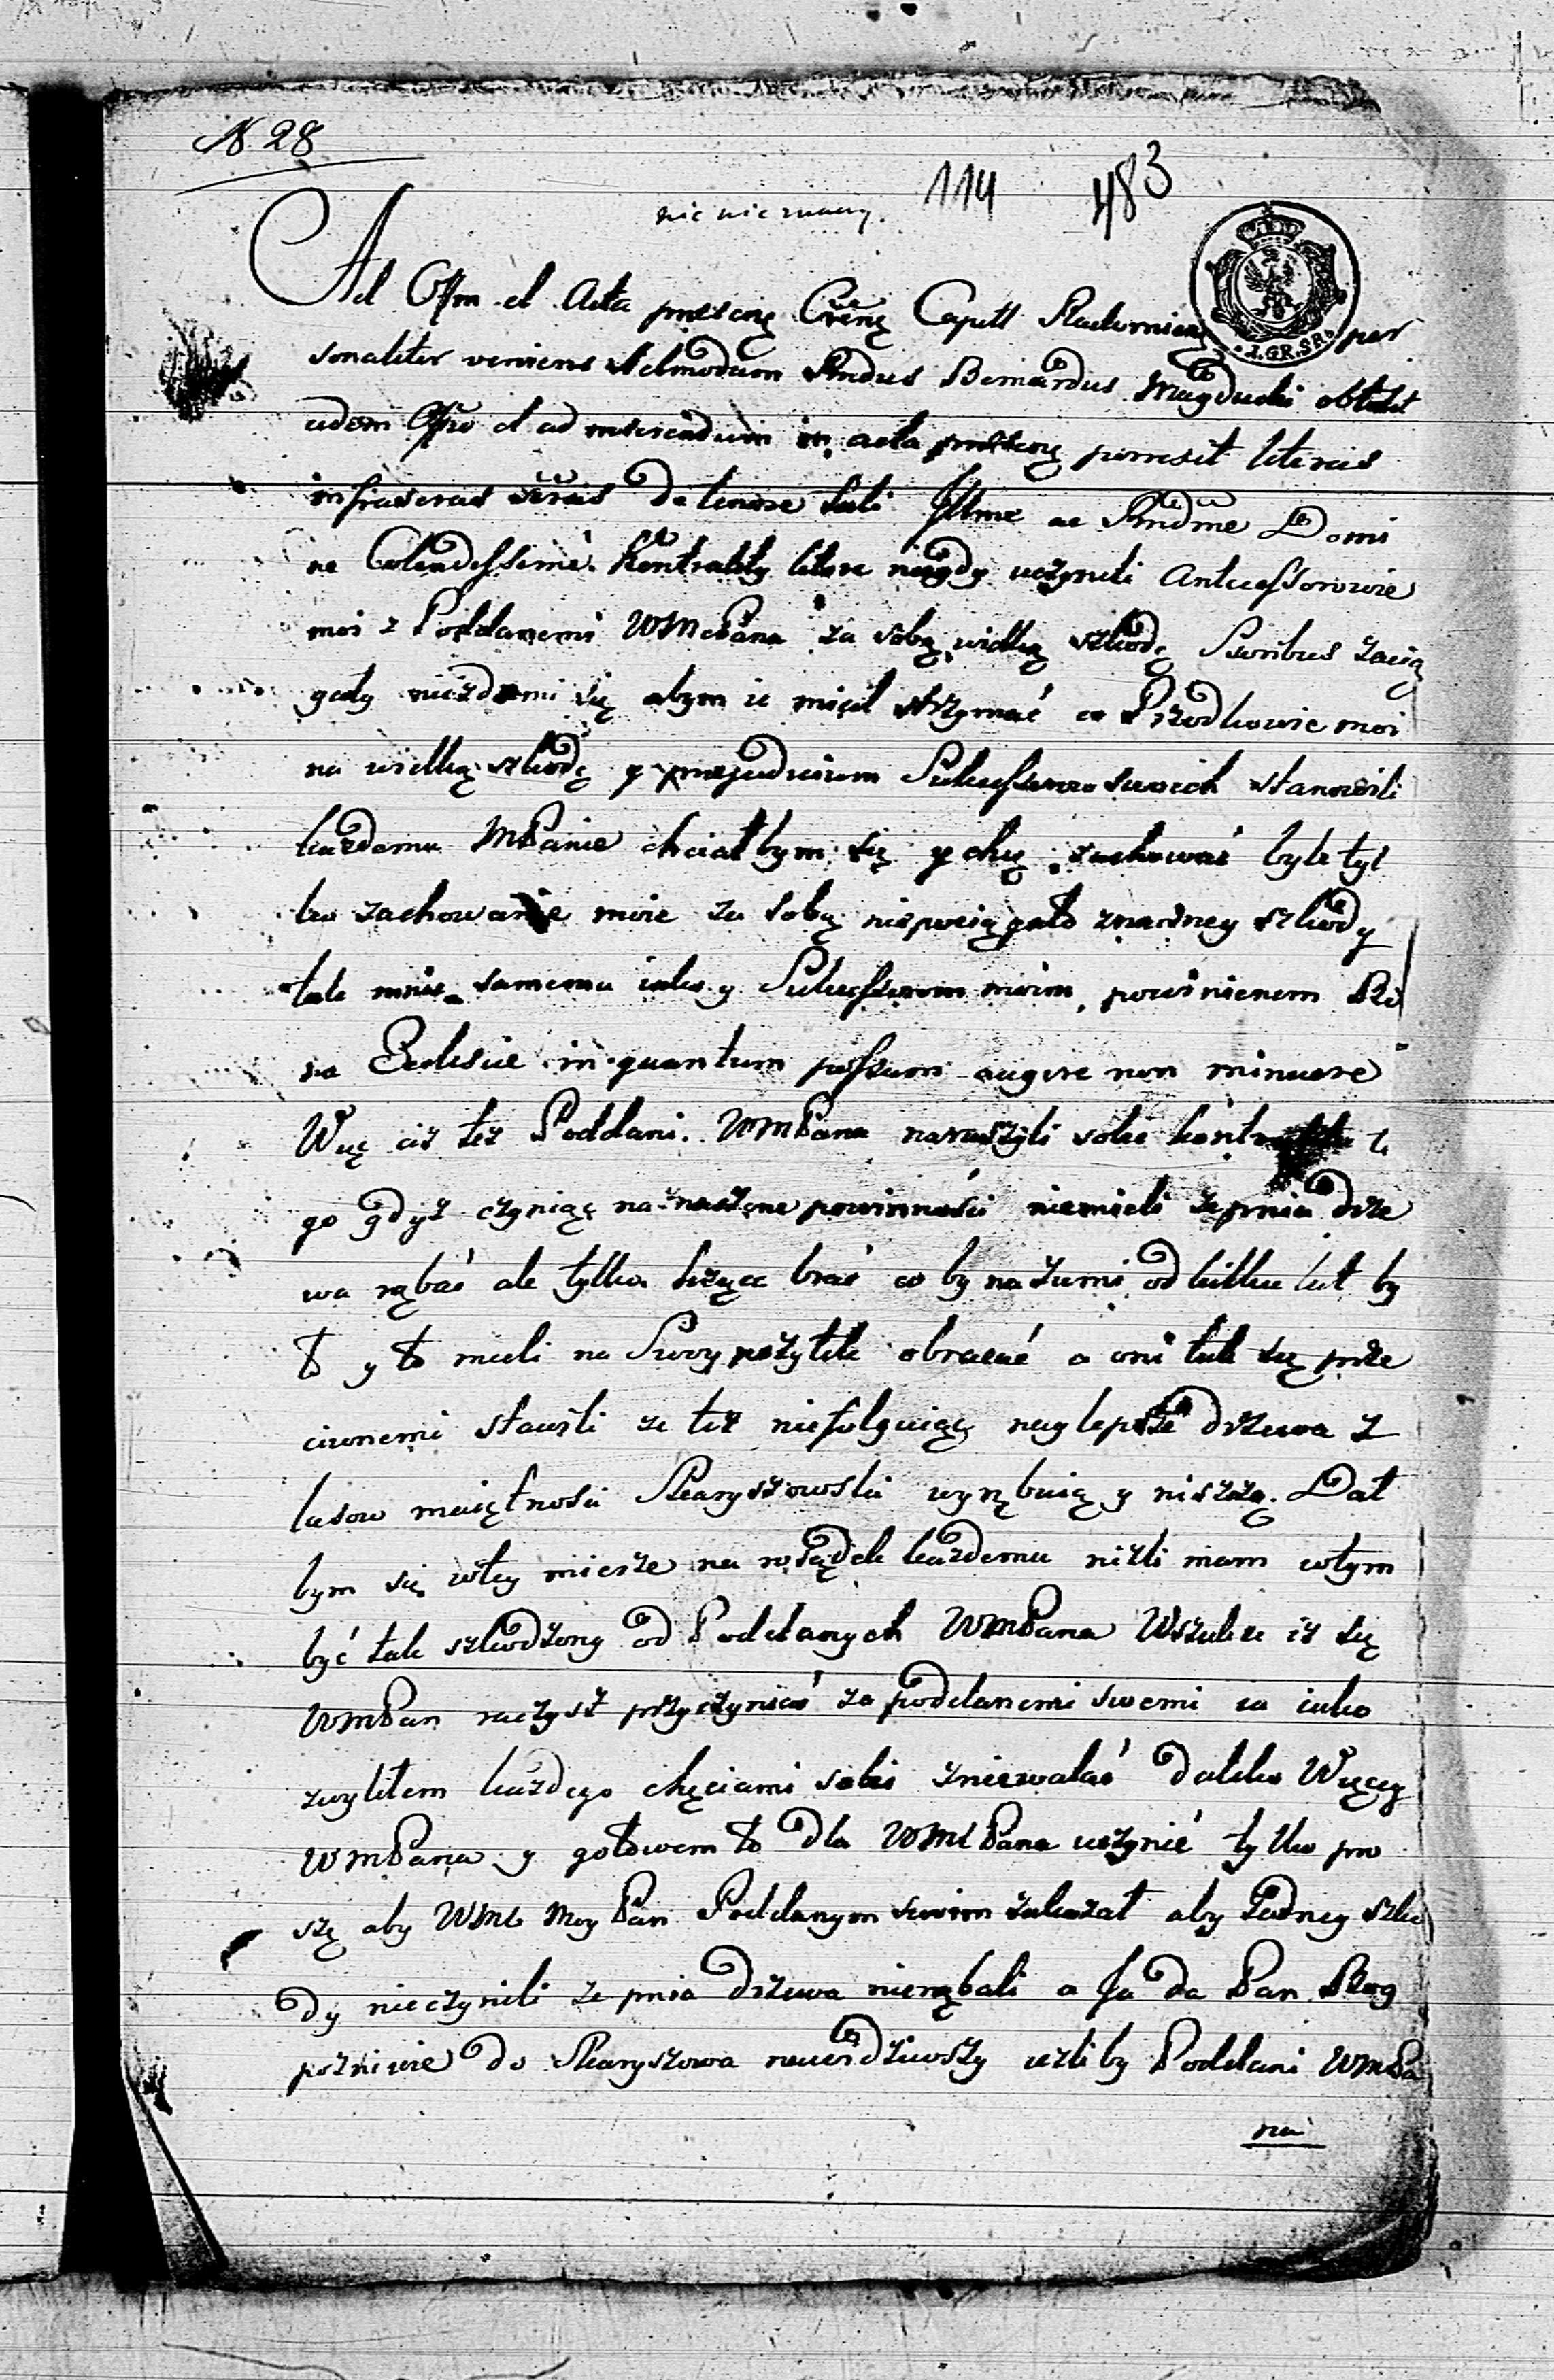 N. 28
114 483
nic nie znaczy.
Ad Offm et Acta præsenę Crēnę Capitt Radomien per
sonaliter veniens Admodum Rndus Bernardus Magducki obtulit
eidem Offio et ad inserendum in acta præsenę porrexit literas
infrascras seras de tenore tali Illme ac Rndme Domi
ne Colendessime. Kontrakty ktore niegdy uczynili Antecessorowie
moi z Poddanemi WMcPana za sobą wielką szkodę zacią
gały niezdami się abym ie miał strzymać co Przodkowie moi
na wielką szkodę y præjudicium Sukcessorow swoich stanowili
każdemu MPanie chciałbym się y chcę zachować byle tyl
ko zachowanie moie za sobą niepociągało znaczney szkody
tak mnie samemu iako y Sukcessorom moim powinienem Bo
na Ecclesiæ in quantum possum augere non minuere
Więc iż też Poddani WMPana naruszyli sobie kontraktu te
go gdyż czyniąc naznaczone powinności niemieli ze pnia drze
wa rąbać ale tylko leżące brać co by na ziemi od kilku lat by
ło y to mieli na Swoy pożytek obracać a oni tak się prze
ciwnemi stawili ze też niefolguiąc naylepsze drzewa z
lasow maiętności Skaryszowski wyrąbuią y niszczą. Dał
bym się wtey mierze na rosądek każdemu niżli mam wtym
być tak szkodzony od Poddanych WMPana Wszakze iż się
WMPan raczysz przyczyniać za poddanemi swemi ia iako
zwykłem każdego chęciami sobie zniewalać daleko Więcey
WMPana y gotowem to dla WMPana uczynić tylko pro
szę aby WMć Moy Pan Poddanym swoim zakazał aby żadney szko
dy nieczynili ze pnia drzewa nierąbali a Ja da Pan Bog
pozniwie do Skaryszowa nawiedziwszy iezliby Poddani WMPa
na